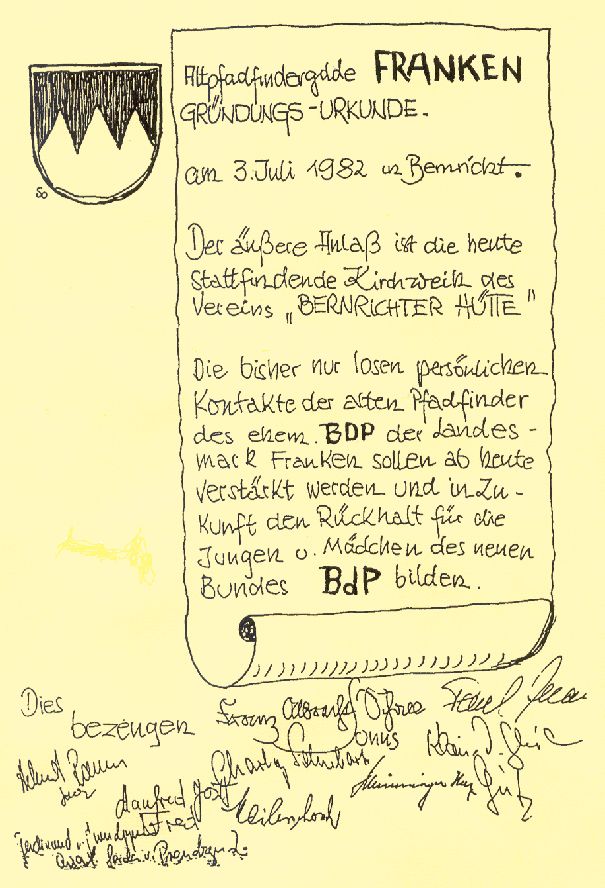 Altpfadfindergilde FRANKEN
GRÜNDUNGS-URKUNDE.
am 3. Juli 1982 in Bernricht.
Der äußere Anlaß ist die heute
stattfindende Kirchweih des
Vereins „BERNRICHTER HÜTTE"
Die bisher nur losen persönlichen
Kontakte der alten Pfadfinder
des ehem. BDP der Landes-
mark Franken sollen ab heute
verstärkt werden und in Zu-
kunft den Rückhalt für die
Jungen u. Mädchen des neuen
Bundes BdP bilden.
Dies
bezeugen
Franz
Charly
Manfred Jost
Ferdinand